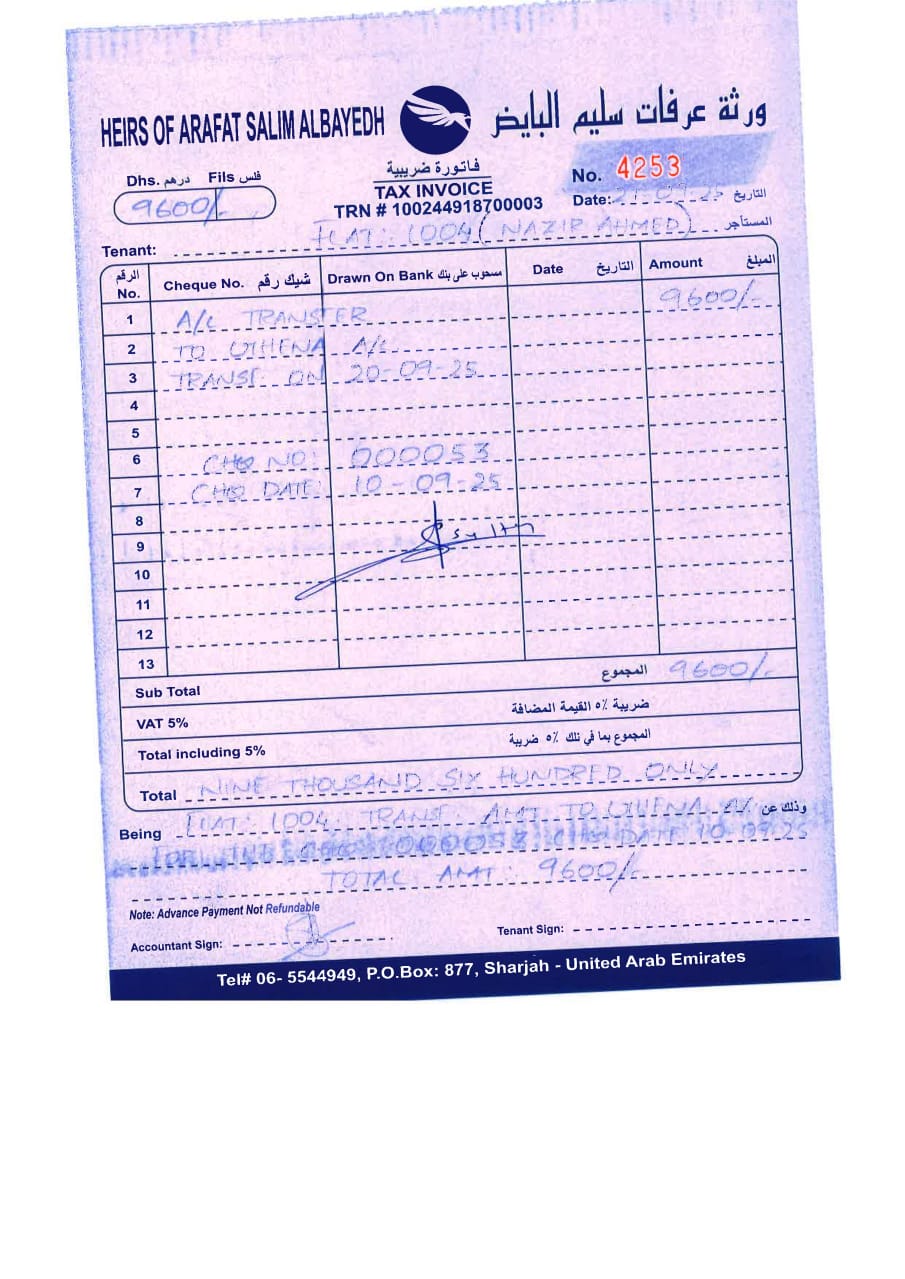 HEIRS OF ARAFAT SALIM ALBAYEDH ورثة عرفات سليم البايض
Dhs. درهم Fils فلس
9600/-
فاتورة ضريبية
TAX INVOICE
TRN # 100244918700003
No. 4253
Date: 21-09-25 التاريخ
Tenant: FLAT: 1004 (NAZIR AHMED) المستأجر
الرقم No. Cheque No. شيك رقم Drawn On Bank مسحوب على بنك Date التاريخ Amount المبلغ
1 A/C TRANSFER 9600/-
2 TO A/C
3 TRANSF ON 20-09-25
4
5
6 CHQ NO: 000053
7 CHQ DATE: 10-09-25
8
9
10
11
12
13
Sub Total المجموع 9600/-
VAT 5% ضريبة ٥٪ القيمة المضافة
Total including 5% المجموع بما في تلك ٥٪ ضريبة
Total NINE THOUSAND SIX HUNDRED ONLY
Being FLAT: 1004 TRANSF AMT TO A/C وذلك عن
FOR THE CHQ 000053 CHQ DATE 10-09-25
TOTAL AMT: 9600/-
Note: Advance Payment Not Refundable
Accountant Sign: Tenant Sign:
Tel# 06- 5544949, P.O.Box: 877, Sharjah - United Arab Emirates